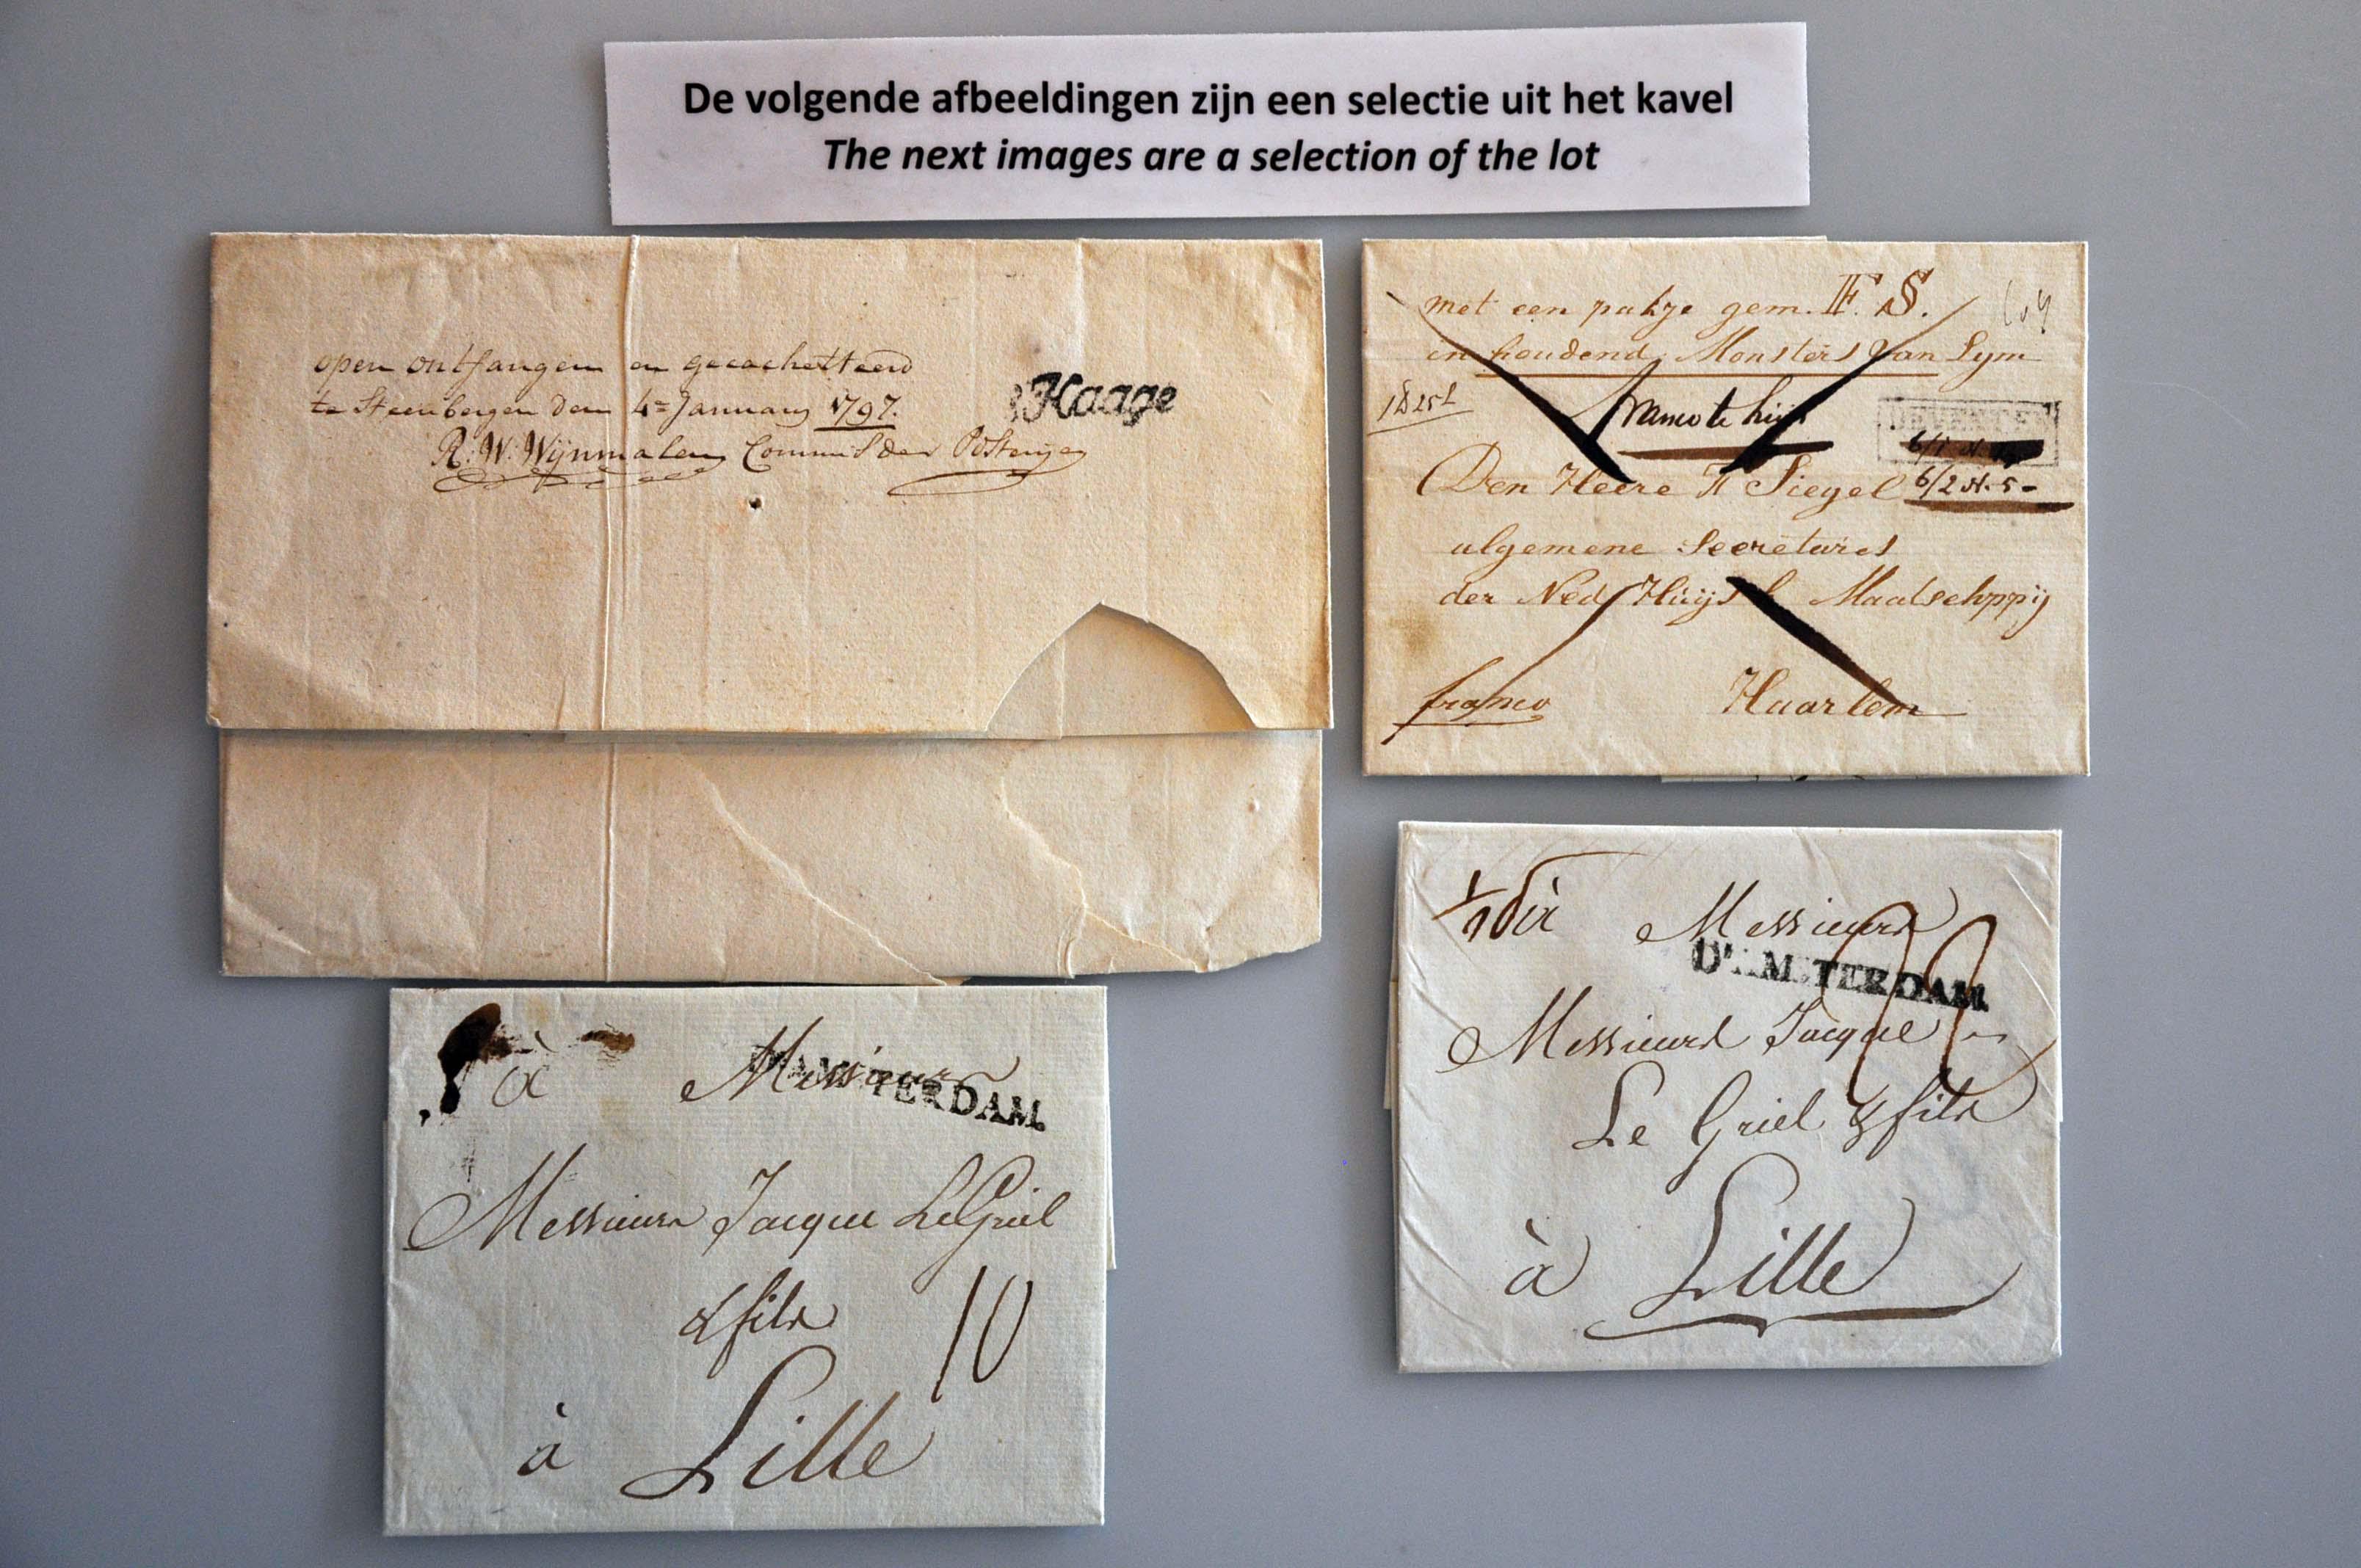 De volgende afbeeldingen zijn een selectie uit het kavel
The next images are a selection of the lot
open ontfangen en gecachetteerd
te Steenbergen den 4= January 1797.
R. W. Wijnmalen Commis der Posterijen
sHaage
met een pakje gem. F. S.
in houdend Monsters van Lym
franco te huis
DEVENTER
6/2 N. 5 -
Den Heere F Siegel
algemene Secretaris
der Ned Huijsh Maatschppij
franco Haarlem
à Messieurs
D'AMSTERDAM
Messieurs Jacque
Le Griel & fils
à Lille
à Messieurs
D'AMSTERDAM
Messieurs Jacque Le Griel
& fils
10
à Lille